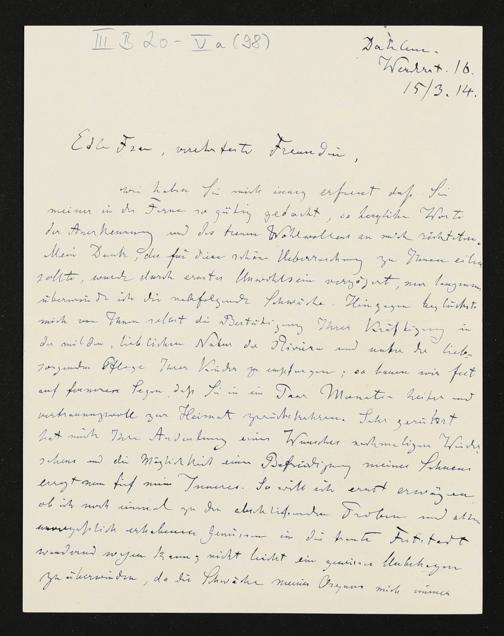 III B 20 - Va (98)
Dahlem.
Werderst. 16.
15/3.14.
Edle Frau, verehrteste Freundin,
wie haben Sie mich innig erfreut daß Sie
meiner in der Ferne so gütig gedacht, so herzliche Worte
der Anerkennung und des treuen Wohlwollens an mich richteten.
Mein Dank, der für diese schöne Ueberraschung zu Ihnen eilen
sollte, wurde durch ernstes Unwohlsein verzögert, nur langsam
überwinde ich die nachfolgende Schwäche. Hingegen beglückte
mich von Ihnen selbst die Bestätigung Ihrer Kräftigung in
der milden, lieblichen Natur der Riviera und unter der liebe-
sorgenden Pflege Ihrer Kinder zu empfangen; so bauen wir fest
auf ferneren Segen, daß Sie in ein Paar Monaten heiter und
vertrauungsvoll zur Heimat zurückkehren. Sehr gerührt
hat mich Ihre Andeutung eines Wunsches nochmaligen Wieder-
sehens und die Möglichkeit einer Befriedigung meines Sehnens
erregt nun tief mein Inneres. So will ich ernst erwägen
ob ich noch einmal zu den abschließenden Proben und allen
erhabenen Genüssen in die Feststadt
wandernd wagen kann; nicht leicht ein gewisses Unbehagen
zu überwinden, da die Schwäche meines Organs mich immer